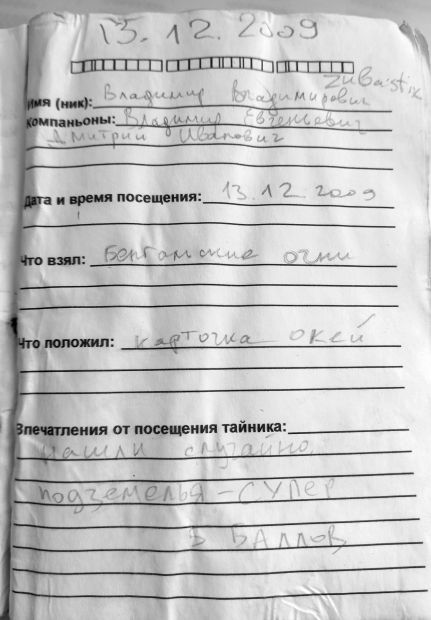 13.12.2009
Zubastik
Имя (ник): Владимир Владимирович
Компаньоны: Владимир Евгеньевич
Дмитрий Иванович
Дата и время посещения: 13.12.2009
Что взял: Бенгальские огни
Что положил: карточка Окей
Впечатления от посещения тайника:
нашли случайно
подземелья - СУПЕР
5 БАЛЛОВ